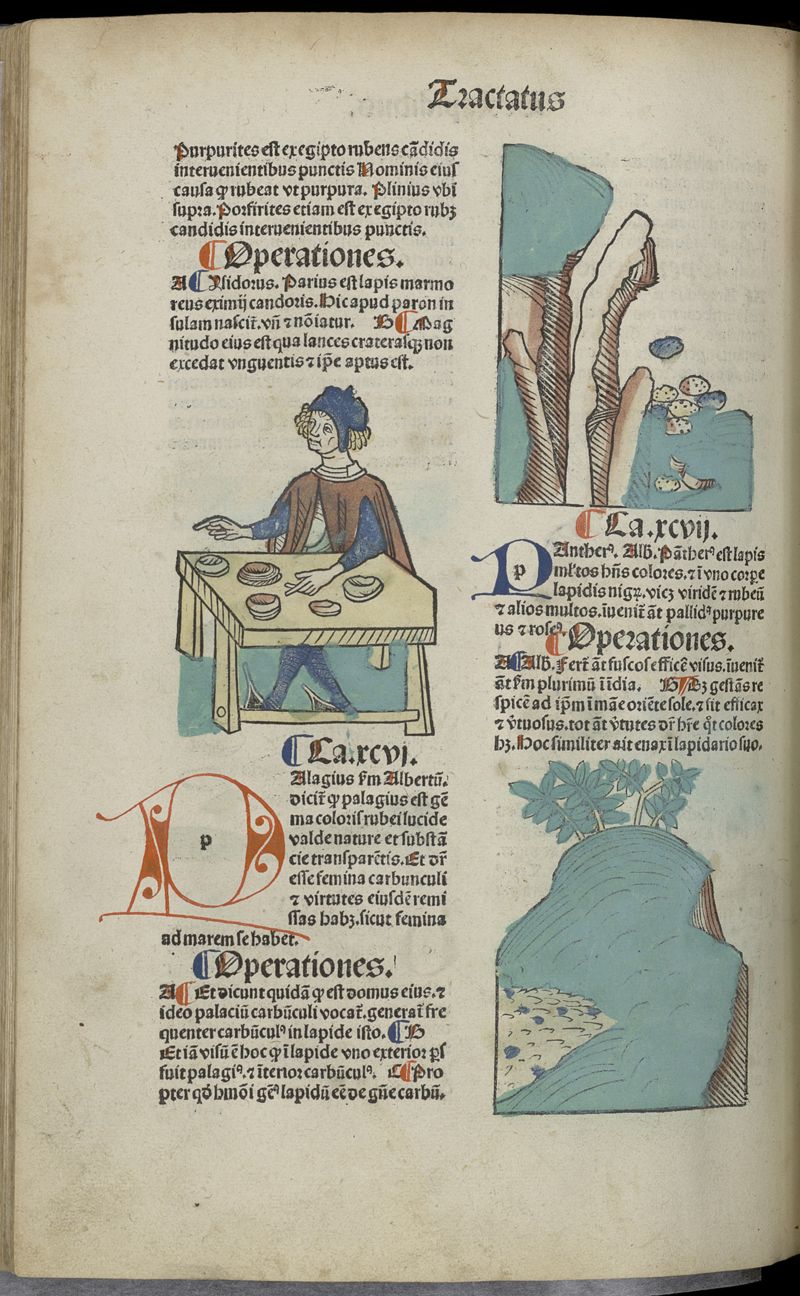 Tractatus
Purpurites est ex egipto rubens cãdidis
interuenientibus punctis Nominis eius
causa ꝙ rubeat vt purpura. Plinius vbi
supra. Porfirites etiam est ex egipto rubꝫ
candidis interuenientibus punctis.
¶ Operationes.
A ¶ Ysidorus. Parius est lapis marmo
reus eximij candoris. Hic apud paron in
sulam nascit᷑. vñ ⁊ nõiatur. B ¶ Mag
nitudo eius est qua lances craterasqꝫ non
excedat vnguentis ⁊ ip̃e aptus est.
¶ Ca. xcvj.
p
Alagius ẜm Albertũ.
dicit᷑ ꝙ palagius est gẽ
ma coloris rubei lucide
valde nature et substã
cie transparẽtis. Et dr̃
esse femina carbunculi
⁊ virtutes eiusdẽ remi
ssas habꝫ. sicut femina
ad marem se habet.
¶ Operationes.
A ¶ Et dicunt quidã ꝙ est domus eius. ⁊
ideo palaciũ carbũculi vocat᷑. generat᷑ fre
quenter carbũculꝰ in lapide isto. ¶ B
Et iã visũ ẽ hoc ꝙ ĩ lapide vno exterior p̲s
fuit palagiꝰ. ⁊ ĩterior carbũculꝰ. C ¶ Pro
pter qd̓ hmõi genꝰ lapidũ eẽ de gñe carbũ.
¶ Ca. xcvij.
p
Antherꝰ. Alb̓. Pãtherꝰ est lapis
ml̓tos hñs colores. ⁊ ĩ vno corpe
lapidis nigꝝ. vicꝫ viridẽ ⁊ rubeũ
⁊ alios multos. ĩuenit᷑ ãt pallidꝰ purpure
us ⁊ roseꝰ.
¶ Operationes.
A ¶ Alb̓. Fert᷑ ãt fuscos efficẽ visus. ĩuenit᷑
ãt ẜm plurimũ ĩ ĩdia. B ¶ Hꝫ gestãs re
spicẽ ad ip̃m ĩ mãe oriẽte sole. ⁊ sit efficax
⁊ v̓tuosus. tot ãt v̓tutes dr̃ hr̃e qt̓ colores
hꝫ. Hoc similiter ait enax ĩ lapidario suo.